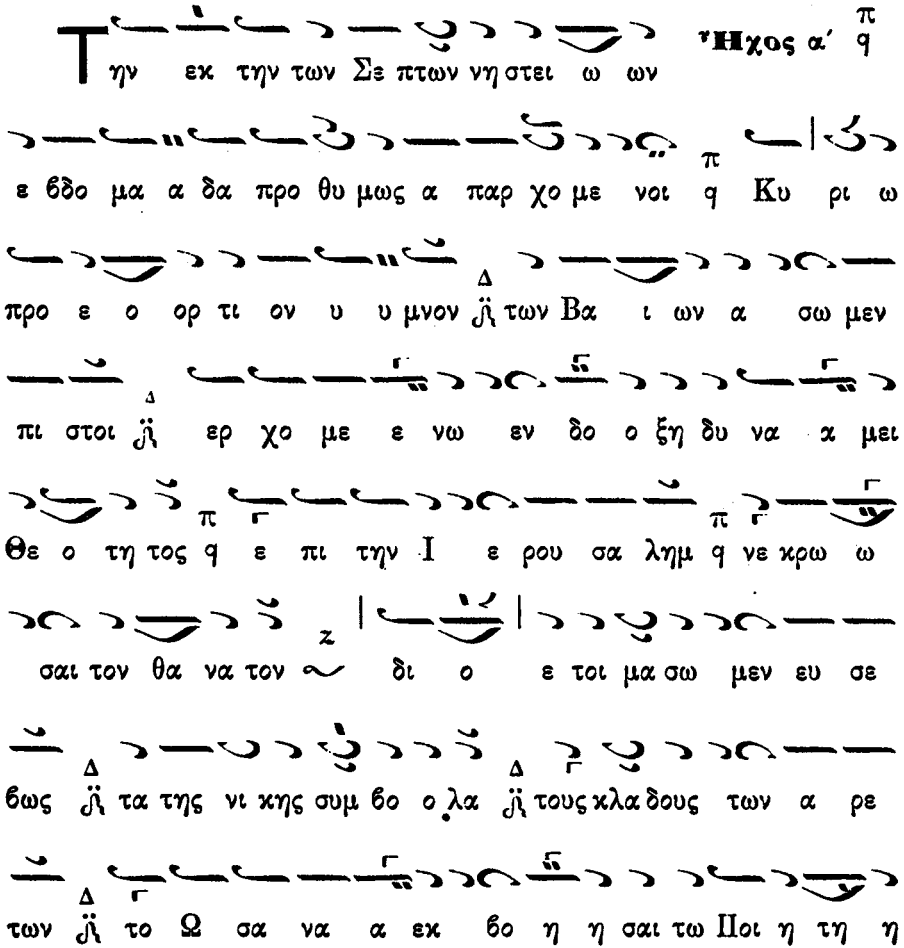 Την εκ την των Σε πτων νη στει ω ων Ἦχος α΄ π q
ε βδο μα α δα προ θυ μως α παρ χο με νοι π q Κυ ρι ω
προ ε ο ορ τι ον υ υ μνον Δ των Βα ι ων α σω μεν
πι στοι Δ ερ χο με ε νω εν δο ο ξη δυ να α μει
Θε ο τη τος π q ε πι την Ι ε ρου σα λημ π q νε κρω ω
σαι τον θα να τον z δι ο ε τοι μα σω μεν ευ σε
βως Δ τα της νι κης συμ βο ο λα Δ τους κλα δους των α ρε
των Δ το Ω σα να α εκ βο η η σαι τω Ποι η τη η